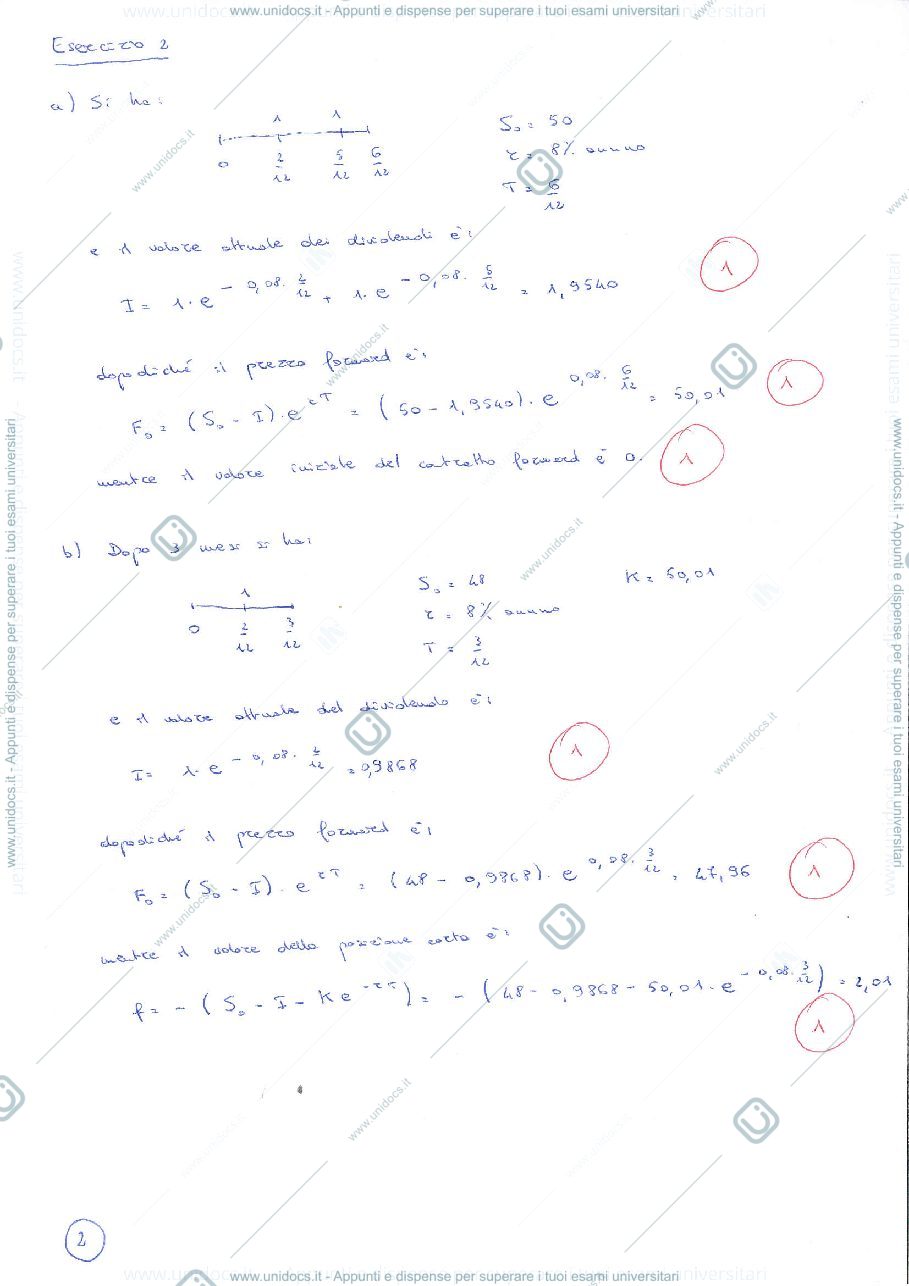 www.unidocs.it - Appunti e dispense per superare i tuoi esami universitari
Esercizio 2
a) Si ha:
1 1
0 2/12 5/12 6/12
S₀ = 50
r = 8% annuo
T = 6/12
e il valore attuale dei dividendi è:
I = 1·e^(-0,08·2/12) + 1·e^(-0,08·5/12) = 1,9540
1
dopodiché il prezzo forward è:
F₀ = (S₀ - I)·e^(rT) = (50 - 1,9540)·e^(0,08·6/12) = 50,01
1
mentre il valore iniziale del contratto forward è 0.
1
b) Dopo 3 mesi si ha:
1
0 2/12 3/12
S₀ = 48
r = 8% annuo
T = 3/12
K = 50,01
e il valore attuale del dividendo è:
I = 1·e^(-0,08·2/12) = 0,9868
1
dopodiché il prezzo forward è:
F₀ = (S₀ - I)·e^(rT) = (48 - 0,9868)·e^(0,08·3/12) = 47,96
1
mentre il valore della posizione corta è:
f = - (S₀ - I - Ke^(-rT)) = - (48 - 0,9868 - 50,01·e^(-0,08·3/12)) = 2,01
1
2
www.unidocs.it - Appunti e dispense per superare i tuoi esami universitari